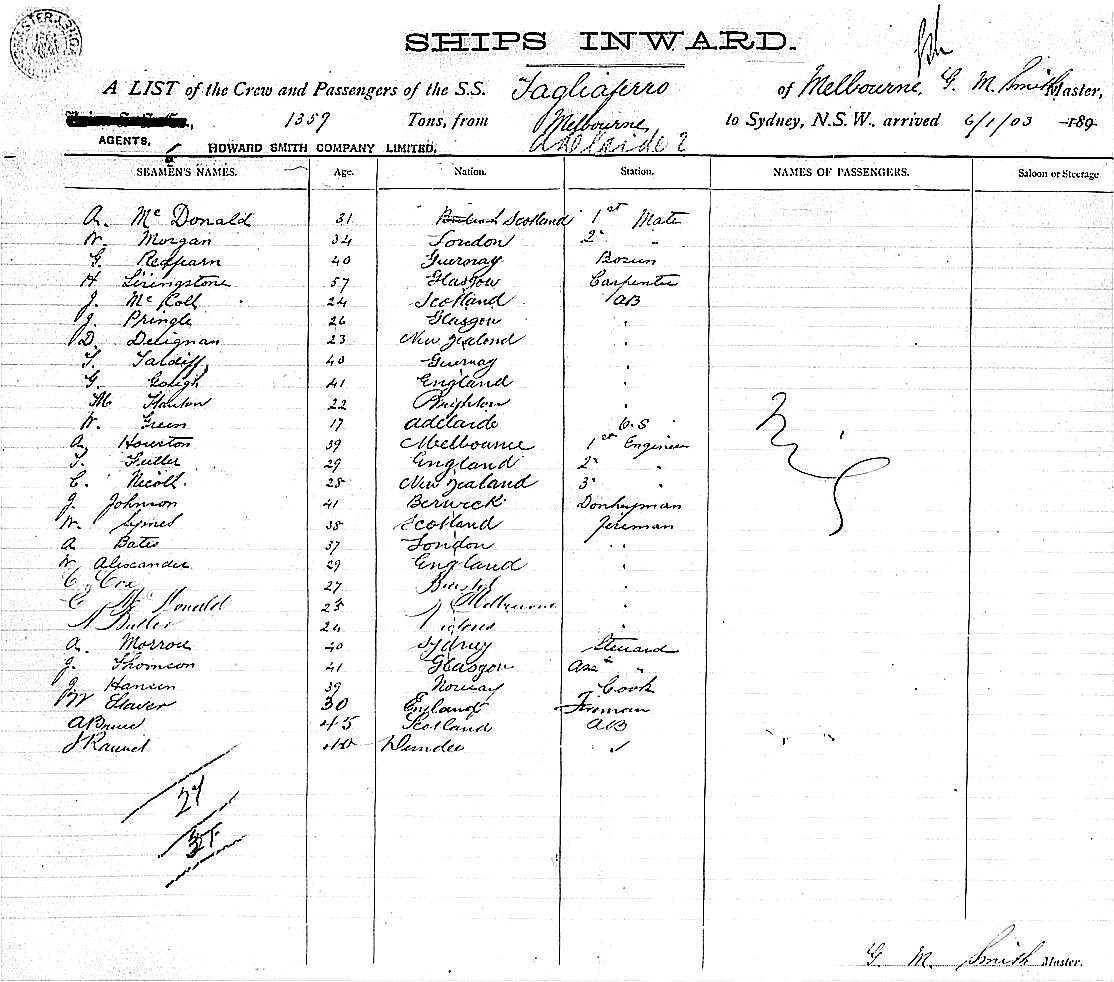 SHIPS INWARD.
A LIST of the Crew and Passengers of the S.S. Tagliaferro of Melbourne, G. M. Smith Master,
1359 Tons, from Melbourne, to Sydney, N.S.W., arrived 6/1/03 189
Adelaide
AGENTS, HOWARD SMITH COMPANY LIMITED.
SEAMEN'S NAMES. Age. Nation. Station. NAMES OF PASSENGERS. Saloon or Steerage
A. McDonald 31 British Scotland 1st Mate
W. Morgan 34 London 2" "
G. Redfarn 40 Guernay Bosun
H Livingstone 57 Glasgow Carpenter
J. McColl 24 Scotland AB
J. Pringle 26 Glasgow "
D. Delignan 23 New Zealand "
T. Tardiff 40 Guernay "
G. Gough 41 England "
M Hanton 22 Brighton "
W. Green 17 Adelaide O.S
A. Houston 39 Melbourne 1st Engineer
T. Fuller 29 England 2" "
C. Nicoll 28 New Zealand 3" "
J. Johnson 41 Berwick Donkeyman
W. 38 Scotland Fireman
A Bates 37 London "
W Alexander 29 England "
C. Cox 27 Bristol "
C McDonald 25 Melbourne "
N Butler 24 "
A. Morrow 40 Sydney Steward
J. Thomson 41 Glasgow Asst "
J Hansen 39 Norway Cook
W Slaver 30 England Fireman
A Bruce 45 Scotland AB
J 40 Dundee
Nil
27
G. M. Smith Master.